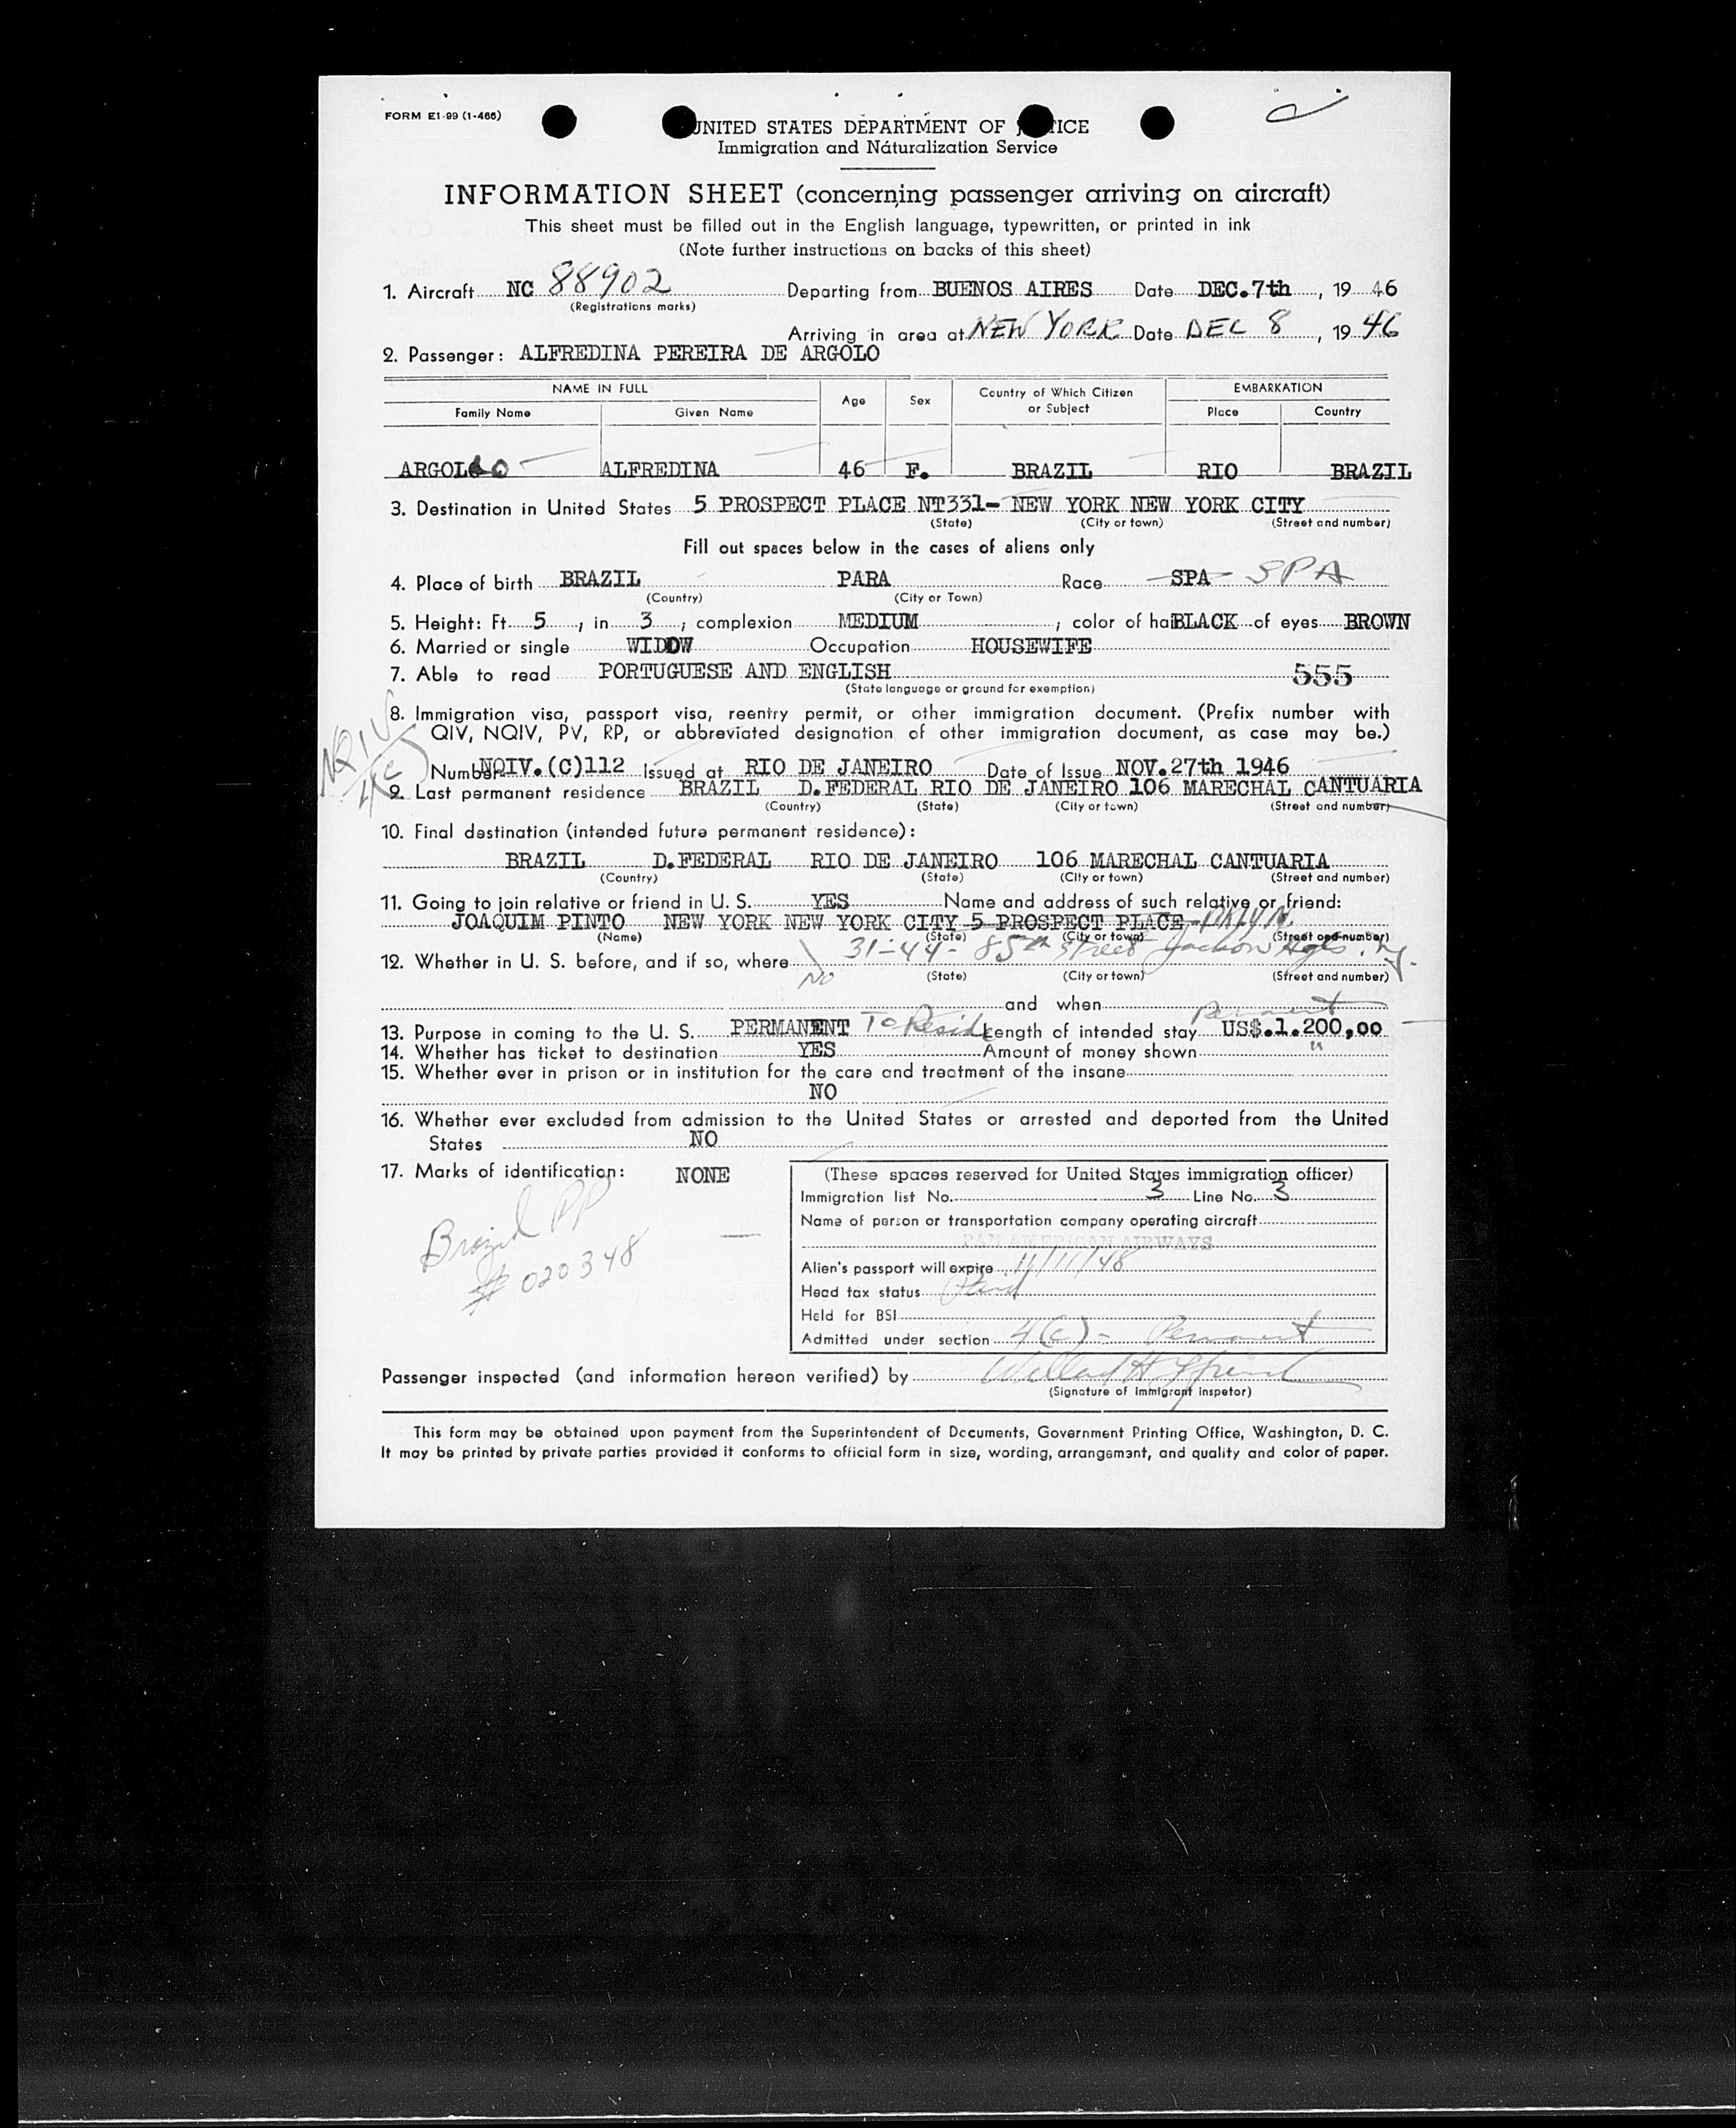 FORM E1-99 (1-466)
UNITED STATES DEPARTMENT OF JUSTICE
Immigration and Naturalization Service
INFORMATION SHEET (concerning passenger arriving on aircraft)
This sheet must be filled out in the English language, typewritten, or printed in ink
(Note further instructions on backs of this sheet)
1. Aircraft NC 88902 Departing from BUENOS AIRES Date DEC.7th, 19 46
(Registrations marks)
Arriving in area at NEW YORK Date DEC 8, 19 46
2. Passenger: ALFREDINA PEREIRA DE ARGOLO
NAME IN FULL Age Sex Country of Which Citizen or Subject EMBARKATION
Family Name Given Name Place Country
ARGOLLO ALFREDINA 46 F. BRAZIL RIO BRAZIL
3. Destination in United States 5 PROSPECT PLACE NT331- NEW YORK NEW YORK CITY
(State) (City or town) (Street and number)
Fill out spaces below in the cases of aliens only
4. Place of birth BRAZIL PARA Race SPA SPA
(Country) (City or Town)
5. Height: Ft. 5, in 3; complexion MEDIUM; color of hai BLACK of eyes BROWN
6. Married or single WIDOW Occupation HOUSEWIFE
7. Able to read PORTUGUESE AND ENGLISH 555
(State language or ground for exemption)
8. Immigration visa, passport visa, reentry permit, or other immigration document. (Prefix number with
QIV, NQIV, PV, RP, or abbreviated designation of other immigration document, as case may be.)
NQIV
4(c)
Number NQIV.(C)112 Issued at RIO DE JANEIRO Date of Issue NOV.27th 1946
9. Last permanent residence BRAZIL D.FEDERAL RIO DE JANEIRO 106 MARECHAL CANTUARIA
(Country) (State) (City or town) (Street and number)
10. Final destination (intended future permanent residence):
BRAZIL D.FEDERAL RIO DE JANEIRO 106 MARECHAL CANTUARIA
(Country) (State) (City or town) (Street and number)
11. Going to join relative or friend in U. S. YES Name and address of such relative or friend:
JOAQUIM PINTO NEW YORK NEW YORK CITY 5 PROSPECT PLACE BKLYN.
(Name) (State) (City or town) (Street and number)
31-44-85th Street Jackson Hgts. Ny.
12. Whether in U. S. before, and if so, where NO
(State) (City or town) (Street and number)
and when
Permanent
13. Purpose in coming to the U. S. PERMANENT To Reside Length of intended stay US$.1.200,00
14. Whether has ticket to destination YES Amount of money shown "
15. Whether ever in prison or in institution for the care and treatment of the insane
NO
16. Whether ever excluded from admission to the United States or arrested and deported from the United
States NO
17. Marks of identification: NONE
Brazil PP
# 020348
(These spaces reserved for United States immigration officer)
Immigration list No. 3 Line No. 3
Name of person or transportation company operating aircraft
PAN AMERICAN AIRWAYS
Alien's passport will expire 11/11/48
Head tax status Paid
Held for BSI
Admitted under section 4(c) - Permanent
Passenger inspected (and information hereon verified) by
(Signature of Immigrant inspetor)
This form may be obtained upon payment from the Superintendent of Documents, Government Printing Office, Washington, D. C.
It may be printed by private parties provided it conforms to official form in size, wording, arrangement, and quality and color of paper.